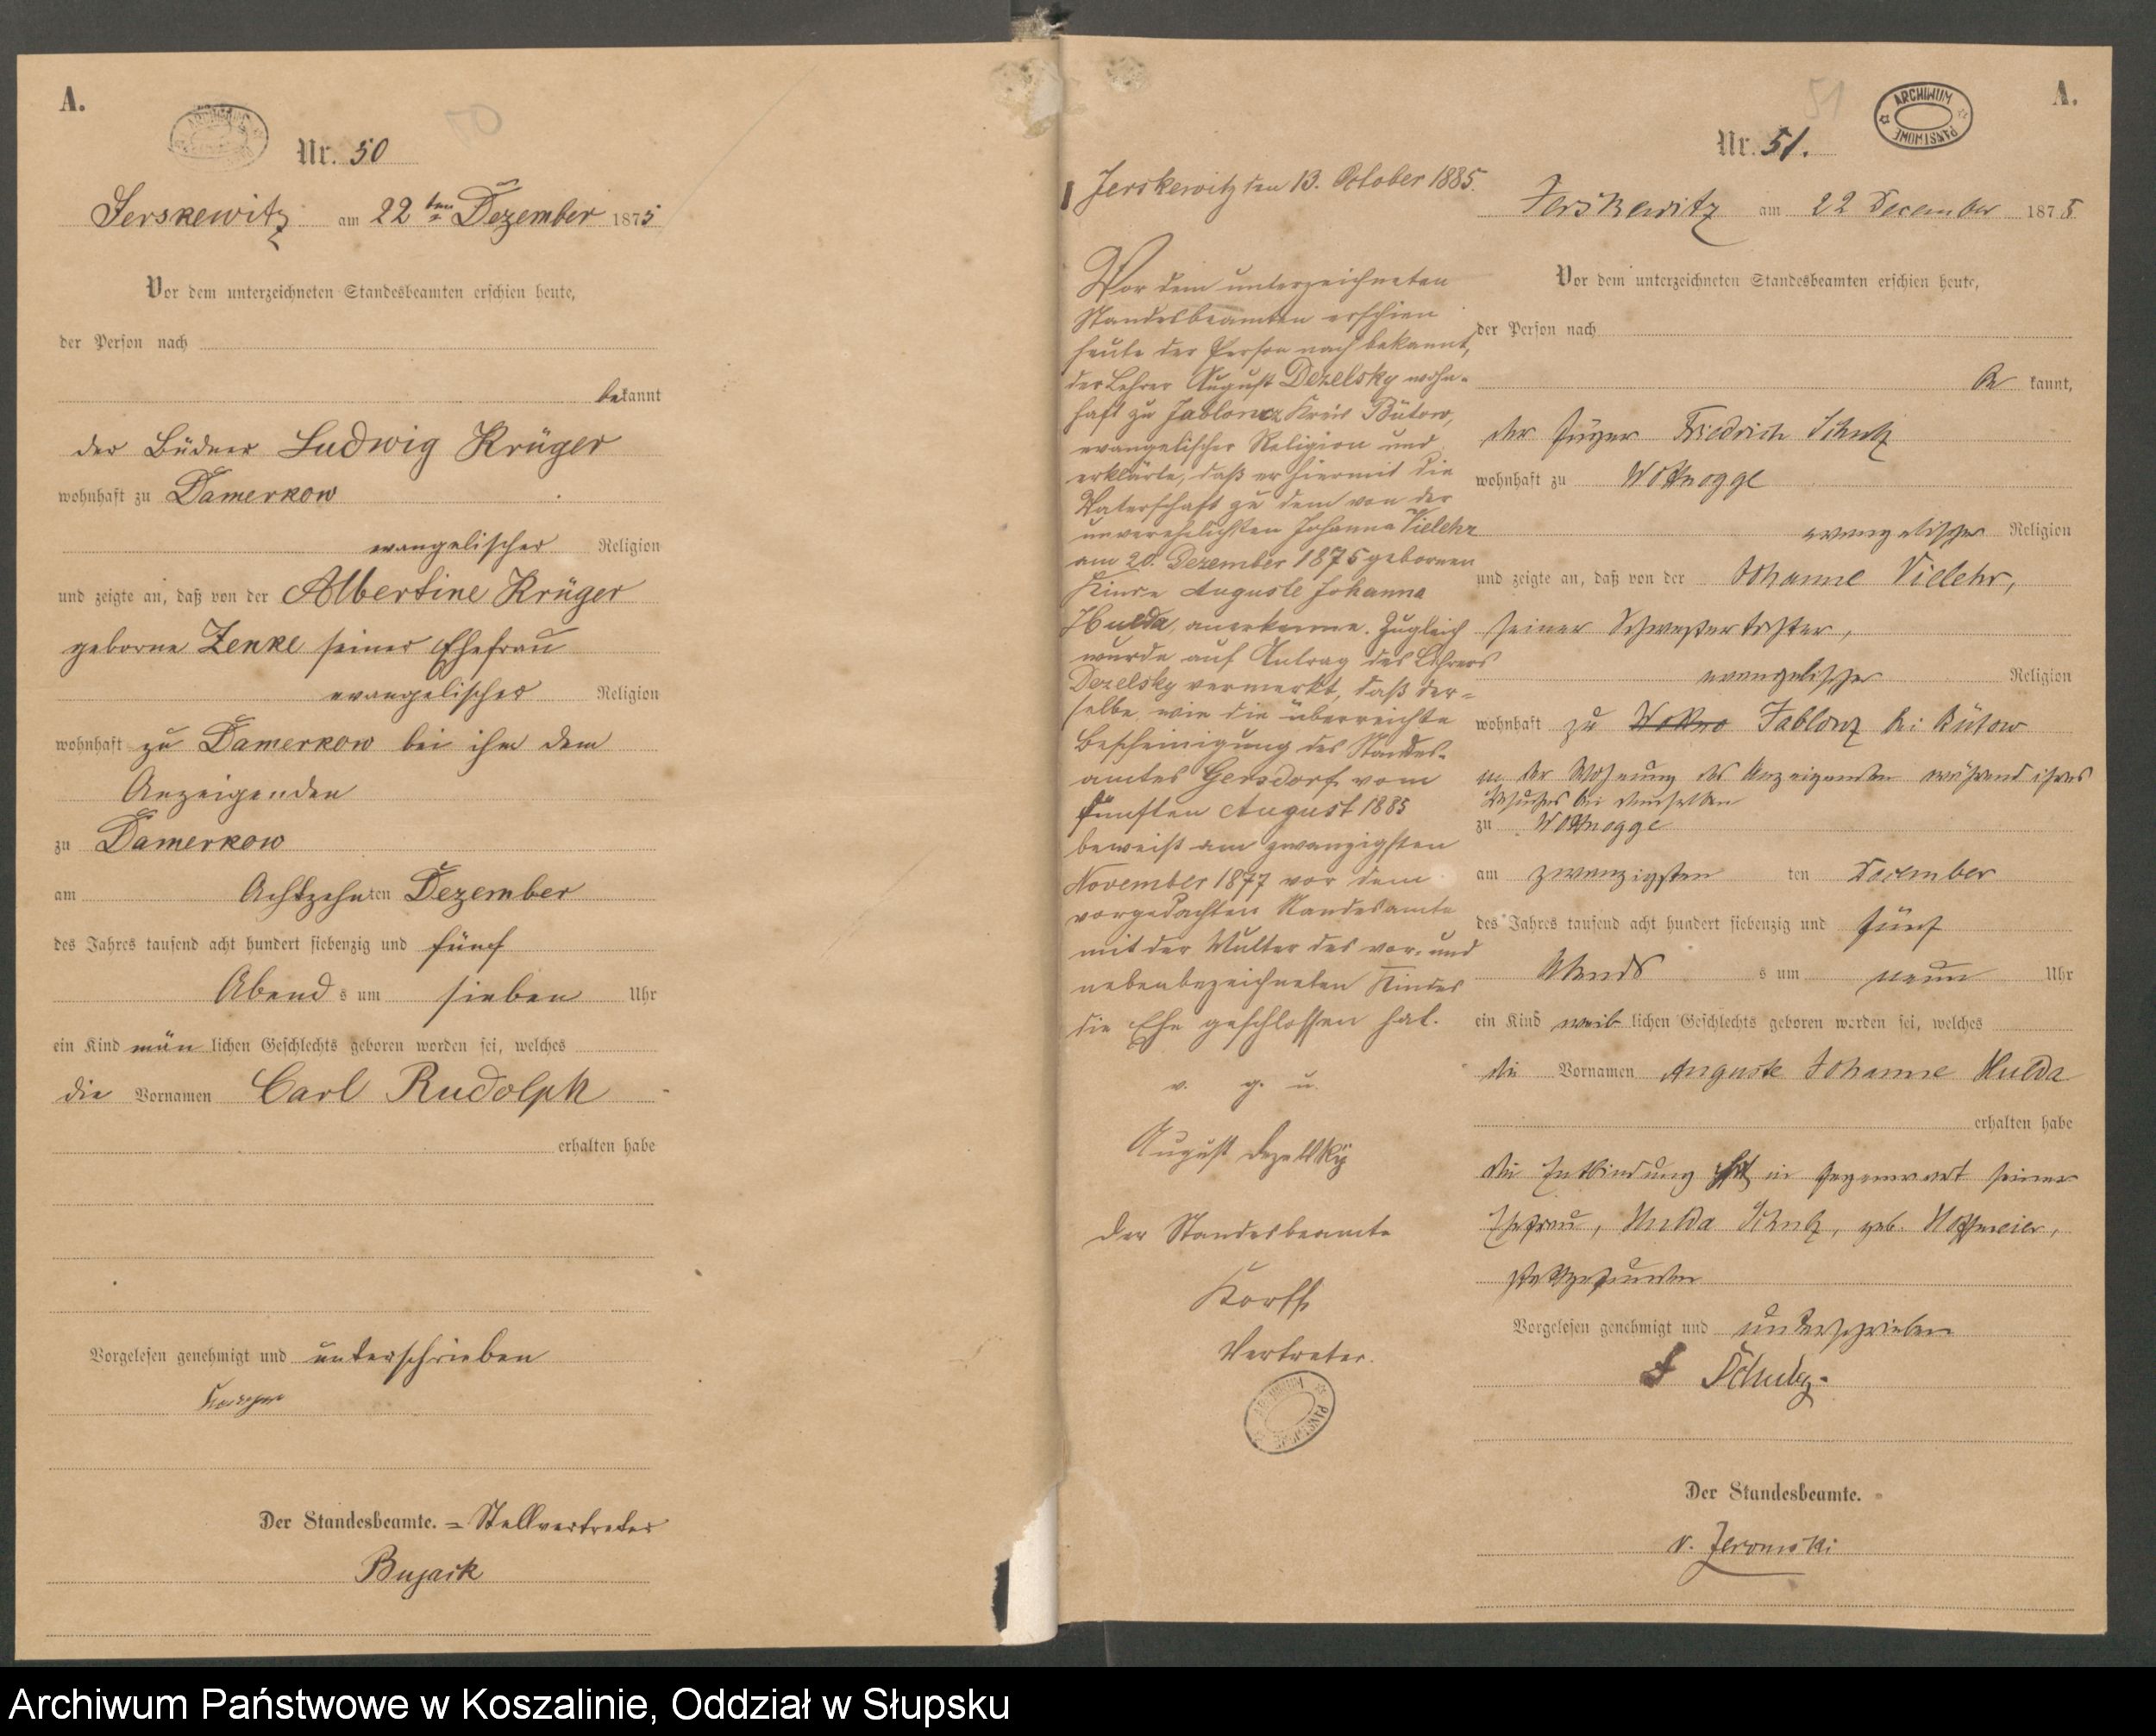 A.
ARCHIWUM PAŃSTWOWE
50
Nr. 50
Jerskewitz am 22ten Dezember 1875
Vor dem unterzeichneten Standesbeamten erschien heute,
der Person nach
bekannt
der Büdner Ludwig Krüger
wohnhaft zu Damerkow
evangelischer Religion
und zeigte an, daß von der Albertine Krüger
geborne Zenke seiner Ehefrau
evangelischer Religion
wohnhaft zu Damerkow bei ihm dem
Anzeigenden
zu Damerkow
am Achtzehnten Dezember
des Jahres tausend acht hundert siebenzig und fünf
Abends um sieben Uhr
ein Kind mänlichen Geschlechts geboren worden sei, welches
die Vornamen Carl Rudolph
erhalten habe
Vorgelesen genehmigt und unterschrieben
Der Standesbeamte. = Stellvertreter
Bujack
Jerskewitz den 13. October 1885.
Vor dem unterzeichneten
Standesbeamten erschien
heute der Person nach bekannt,
der Lehrer August Dezelsky wohn-
haft zu Jabloncz Kreis Bütow,
evangelischer Religion und
erklärte, daß er hiermit die
Vaterschaft zu dem von der
unverehelichten Johanna Vielehr
am 20. Dezember 1875 gebornen
Kinde Auguste Johanna
Hulda, anerkenne. Zugleich
wurde auf Antrag des Lehrers
Dezelsky vermerkt, daß der=
selbe, wie die überreichte
Bescheinigung des Standes-
amtes Gersdorf vom
fünften August 1885
beweist am zwanzigsten
November 1877 vor dem
vorgedachten Standesamte
mit der Mutter des vor- und
nebenbezeichneten Kindes
die Ehe geschlossen hat.
v. g. u.
August Dezelsky
Der Standesbeamte
Korff
Vertreter.
ARCHIWUM PAŃSTWOWE
51
ARCHIWUM PAŃSTWOWE
A.
Nr. 51.
Jerskewitz am 22 December 1875
Vor dem unterzeichneten Standesbeamten erschien heute,
der Person nach
bekannt,
der Friedrich Schulz
wohnhaft zu Wottnogge
evangelischer Religion
und zeigte an, daß von der Johanne Vielehr,
seiner Schwestertochter,
evangelischer Religion
wohnhaft zu Wottno Jablonz bei Bütow
in der Wohnung des Anzeigenden während ihres
Besuches bei demselben
zu Wottnogge
am zwanzigsten ten December
des Jahres tausend acht hundert siebenzig und fünf
Abends um neun Uhr
ein Kind weiblichen Geschlechts geboren worden sei, welches
die Vornamen Auguste Johanne Hulda
erhalten habe
die Entbindung hat in Gegenwart seiner
Ehefrau, Hulda Schulz, geb. Hoffmeier,
stattgefunden
Vorgelesen genehmigt und unterschrieben
F Schulz.
Der Standesbeamte.
v. Zeromski
Archiwum Państwowe w Koszalinie, Oddział w Słupsku